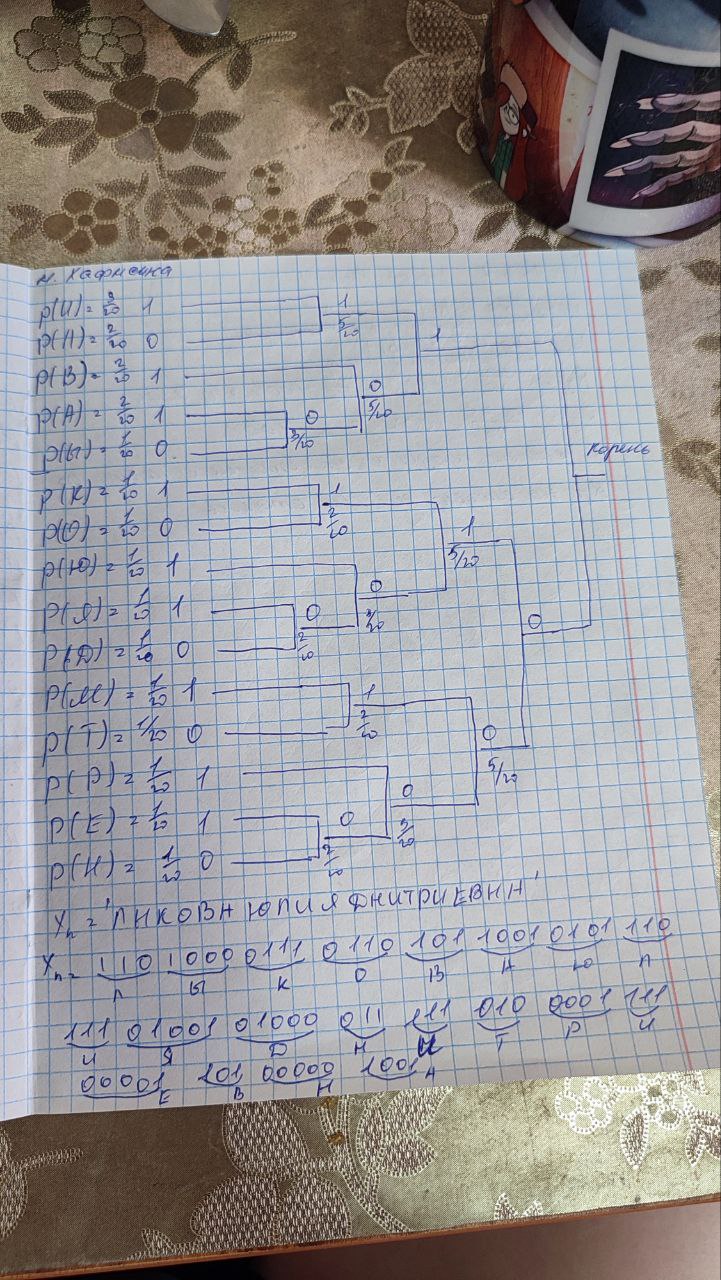 м. Хафмена
p(И) = 3/20 1
p(Л) = 2/20 0
p(В) = 2/20 1
p(А) = 2/20 1
p(Ы) = 1/20 0
p(К) = 1/20 1
p(О) = 1/20 0
p(Ю) = 1/20 1
p(Я) = 1/20 1
p(Д) = 1/20 0
p(М) = 1/20 1
p(Т) = 1/20 0
p(Р) = 1/20 1
p(Е) = 1/20 1
p(Н) = 1/20 0
1
5/20
1
0
5/20
0
3/20
Корень
1
2/20
1
5/20
0
3/20
0
2/20
0
1
2/20
0
5/20
0
3/20
0
2/20
Xn = 'ЛЫКОВА ЮЛИЯ ДМИТРИЕВНА'
Xn = 110 1000 0111 0110 101 1001 0101 110
Л Ы К О В А Ю Л
111 01001 01000 011 111 010 0001 111
И Я Д М И Т Р И
00001 101 00000 1001
Е В Н А